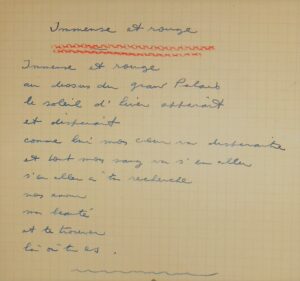 Immense et rouge
Immense et rouge
au dessus du grand Palais
le soleil d'hiver apparaît
et disparaît
comme lui mon cœur va disparaitre
et tout mon sang va s'en aller
s'en aller à ta recherche
mon amour
ma beauté
et te trouver
là où tu es.